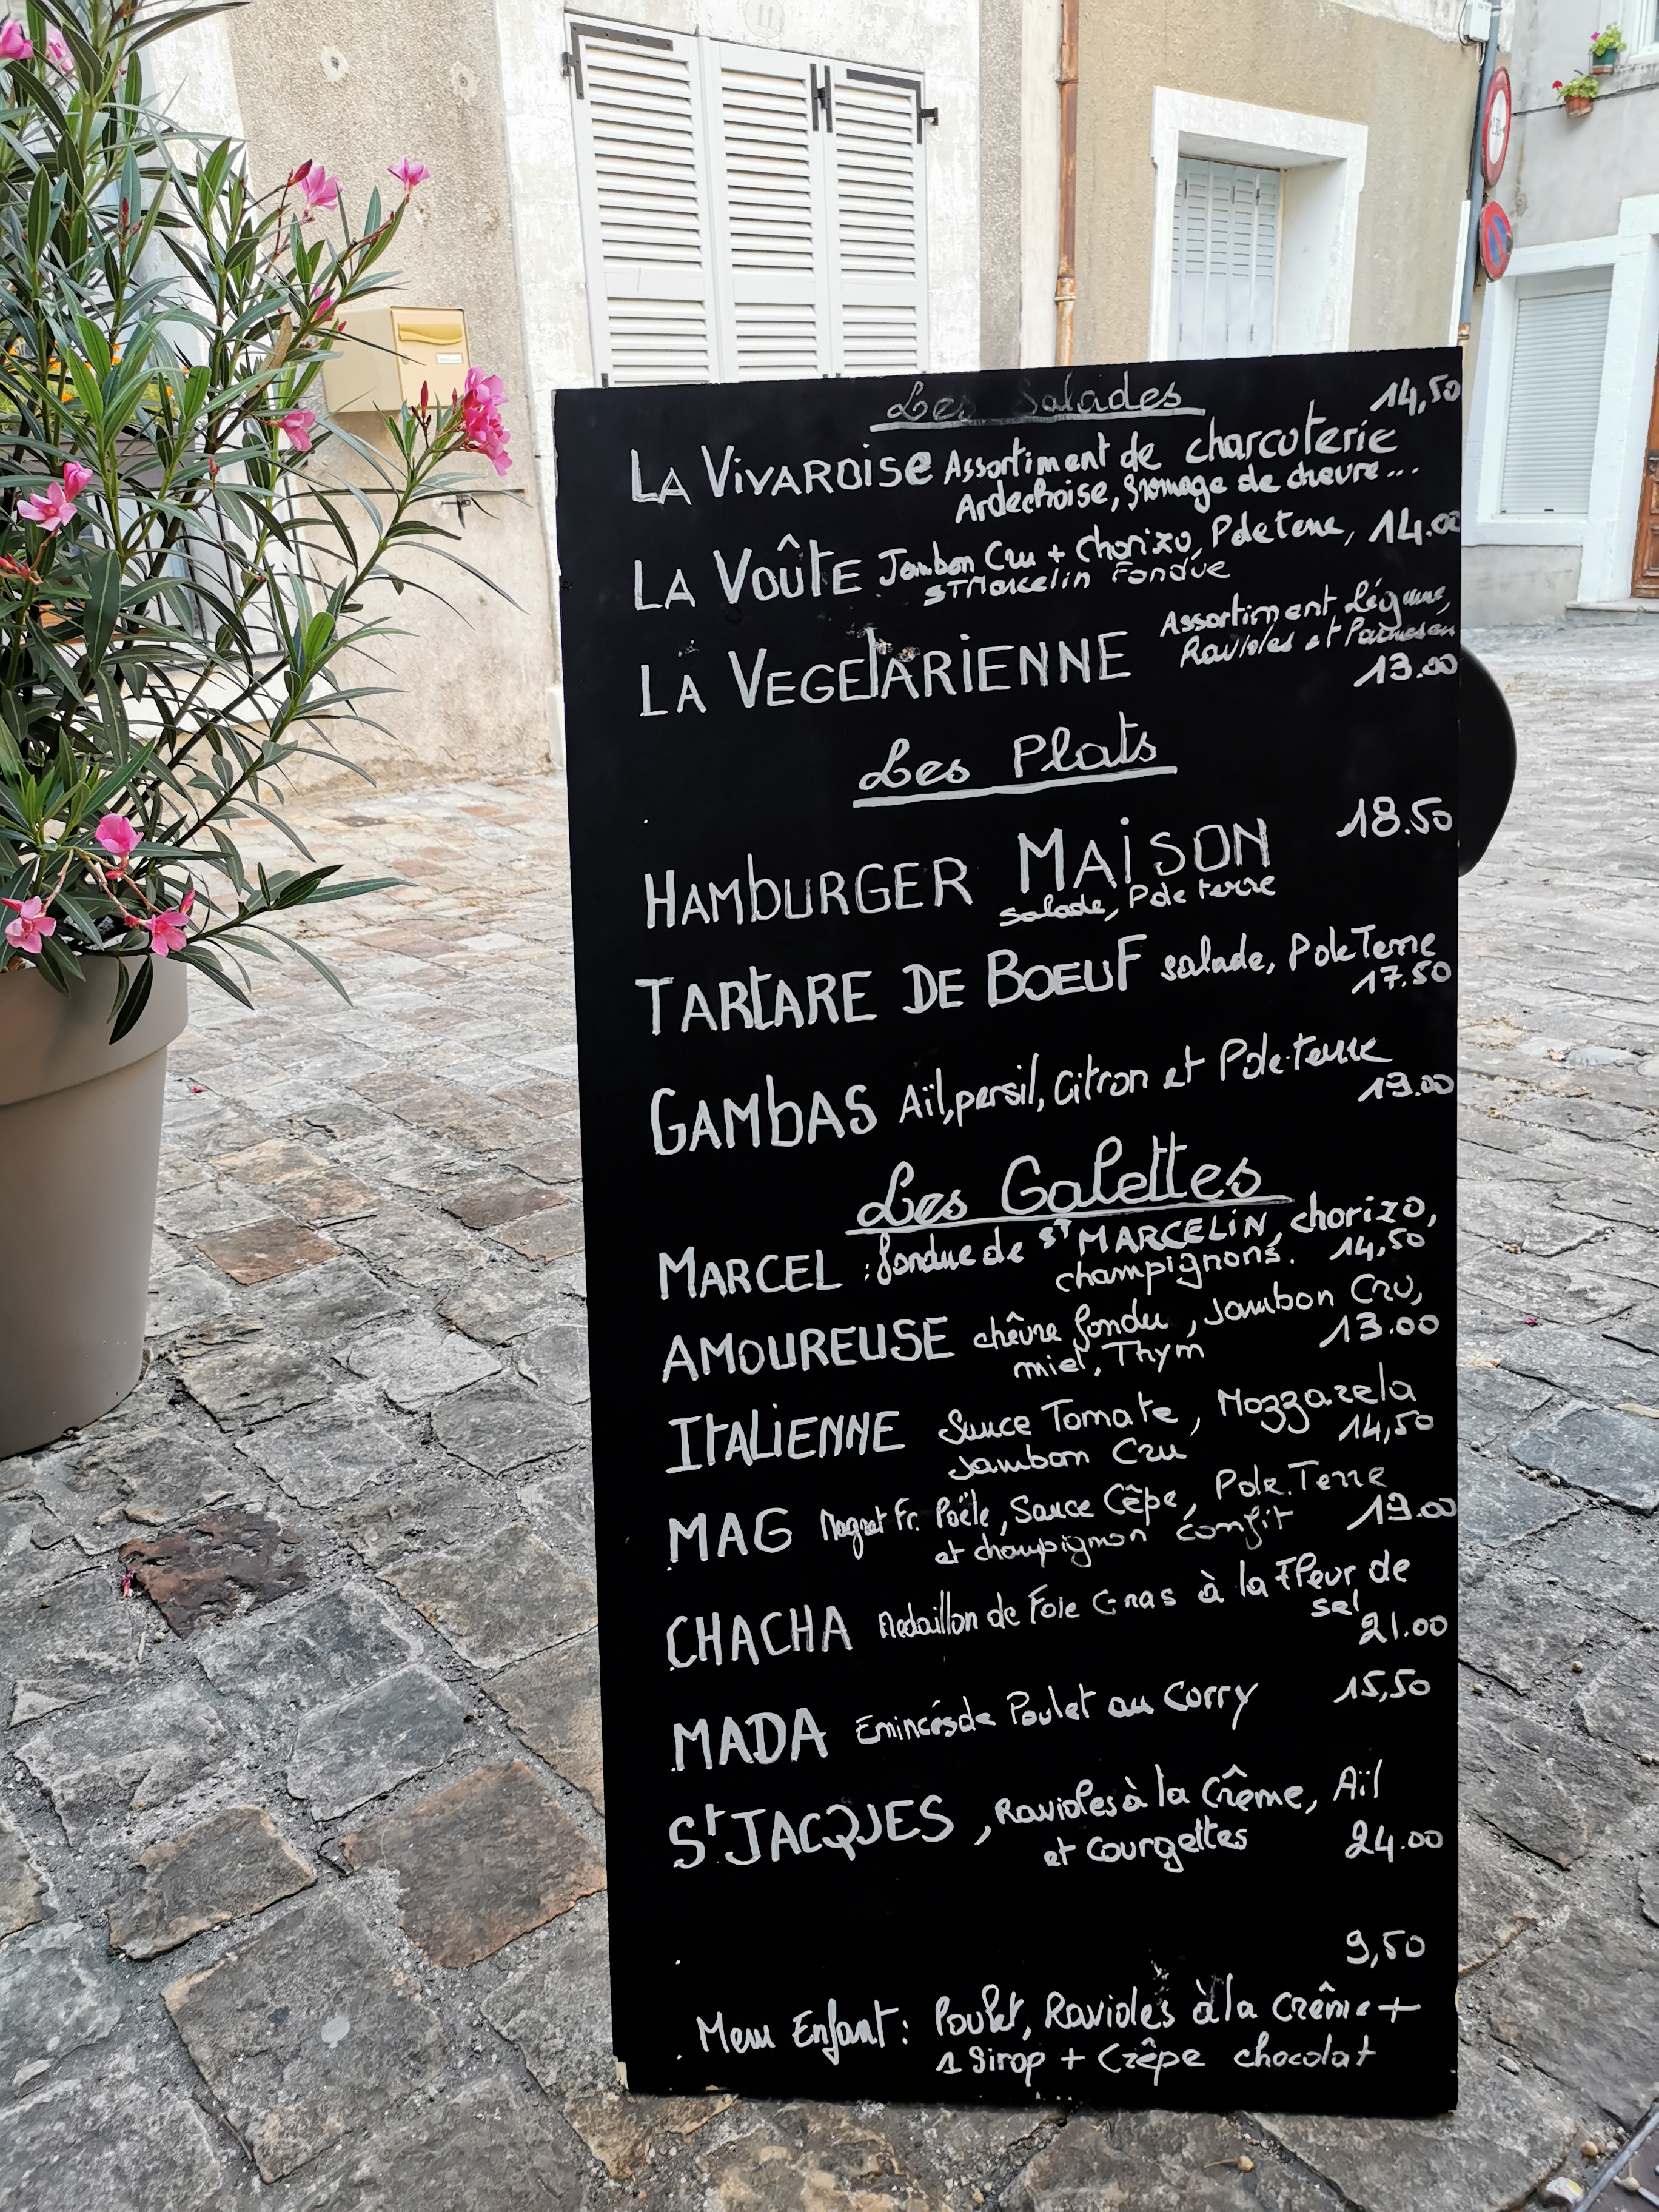 11
Les Salades
14,50
LA VIVAROISE Assortiment de charcuterie
Ardechoise, fromage de chevre...
LA VOÛTE Jambon Cru + Chorizo, P de terre, 14.00
ST Marcelin Fondue
Assortiment légume,
LA VEGETARIENNE Ravioles et Parmesan
13.00
Les Plats
18.50
HAMBURGER MAISON
salade, P de terre
TARTARE DE BOEUF salade, P de Terre
17.50
GAMBAS Aïl, persil, Citron et P de terre
19.00
Les Galettes
MARCEL : fondue de St MARCELIN, chorizo,
champignons. 14,50
AMOUREUSE chêvre fondu, Jambon Cru,
miel, Thym 13.00
ITALIENNE Sauce Tomate, Mozzarela
Jambon Cru 14,50
MAG Magret Fr. Poële, Sauce Cêpe, P de Terre
et champignon confit 19.00
CHACHA Medaillon de Foie Gras à la Fleur de
sel
21.00
MADA Emincés de Poulet au Corry 15,50
St JACQUES, Ravioles à la Crême, Aïl
et Courgettes 24.00
9,50
Menu Enfant: Poulet, Ravioles à la Crême +
1 Sirop + Crêpe chocolat